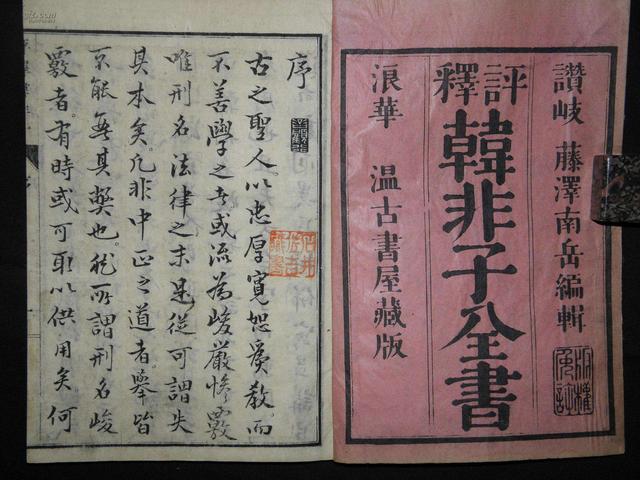 讚岐 藤澤南岳編輯
評釋
韓非子全書
浪華 温古書屋藏版
版權免許
序
古之聖人以忠厚寬恕爲教而
不善學之者或流爲峻嚴慘覈
唯刑名法律之末是從可謂失
其本矣凡非中正之道者舉皆
不能無其弊也然所謂刑名峻
覈者有時或可取以供用矣何